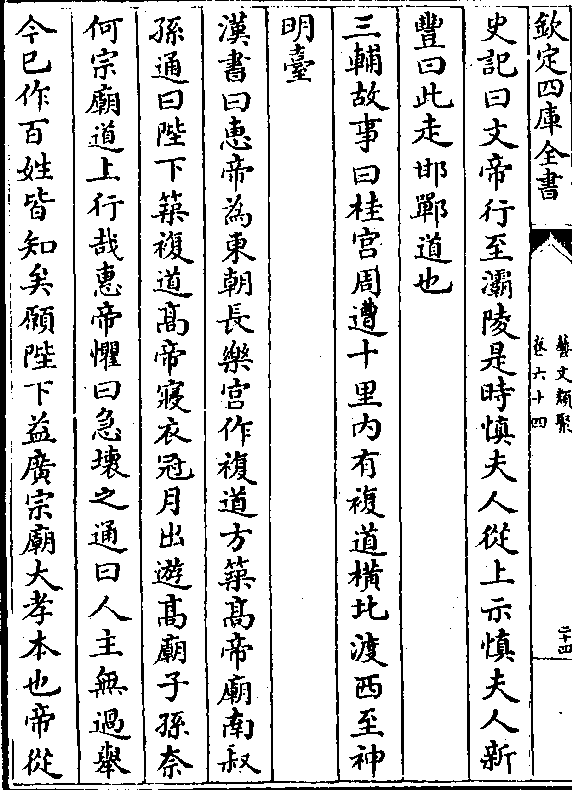 欽定四庫全書
藝文類聚
卷六十四
二十四
史記曰文帝行至灞陵是時慎夫人從上示慎夫人新
豐曰此走邯鄲道也
三輔故事曰桂宫周遭十里内有複道橫北渡西至神
明臺
漢書曰惠帝為東朝長樂宫作複道方築髙帝廟南叔
孫通曰陛下築複道髙帝寢衣冠月出遊髙廟子孫奈
何宗廟道上行哉惠帝懼曰急壊之通曰人主無過舉
今已作百姓皆知矣願陛下益廣宗廟大孝本也帝從